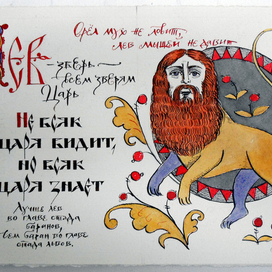 Орёл мух не ловит,
лев мышей не давит
Лев
- зверь -
всем зверям
Царь
Не всяк
царя видит,
но всяк
царя знает
Лучше лев
во главе стада
баранов,
чем баран во главе
стада львов.